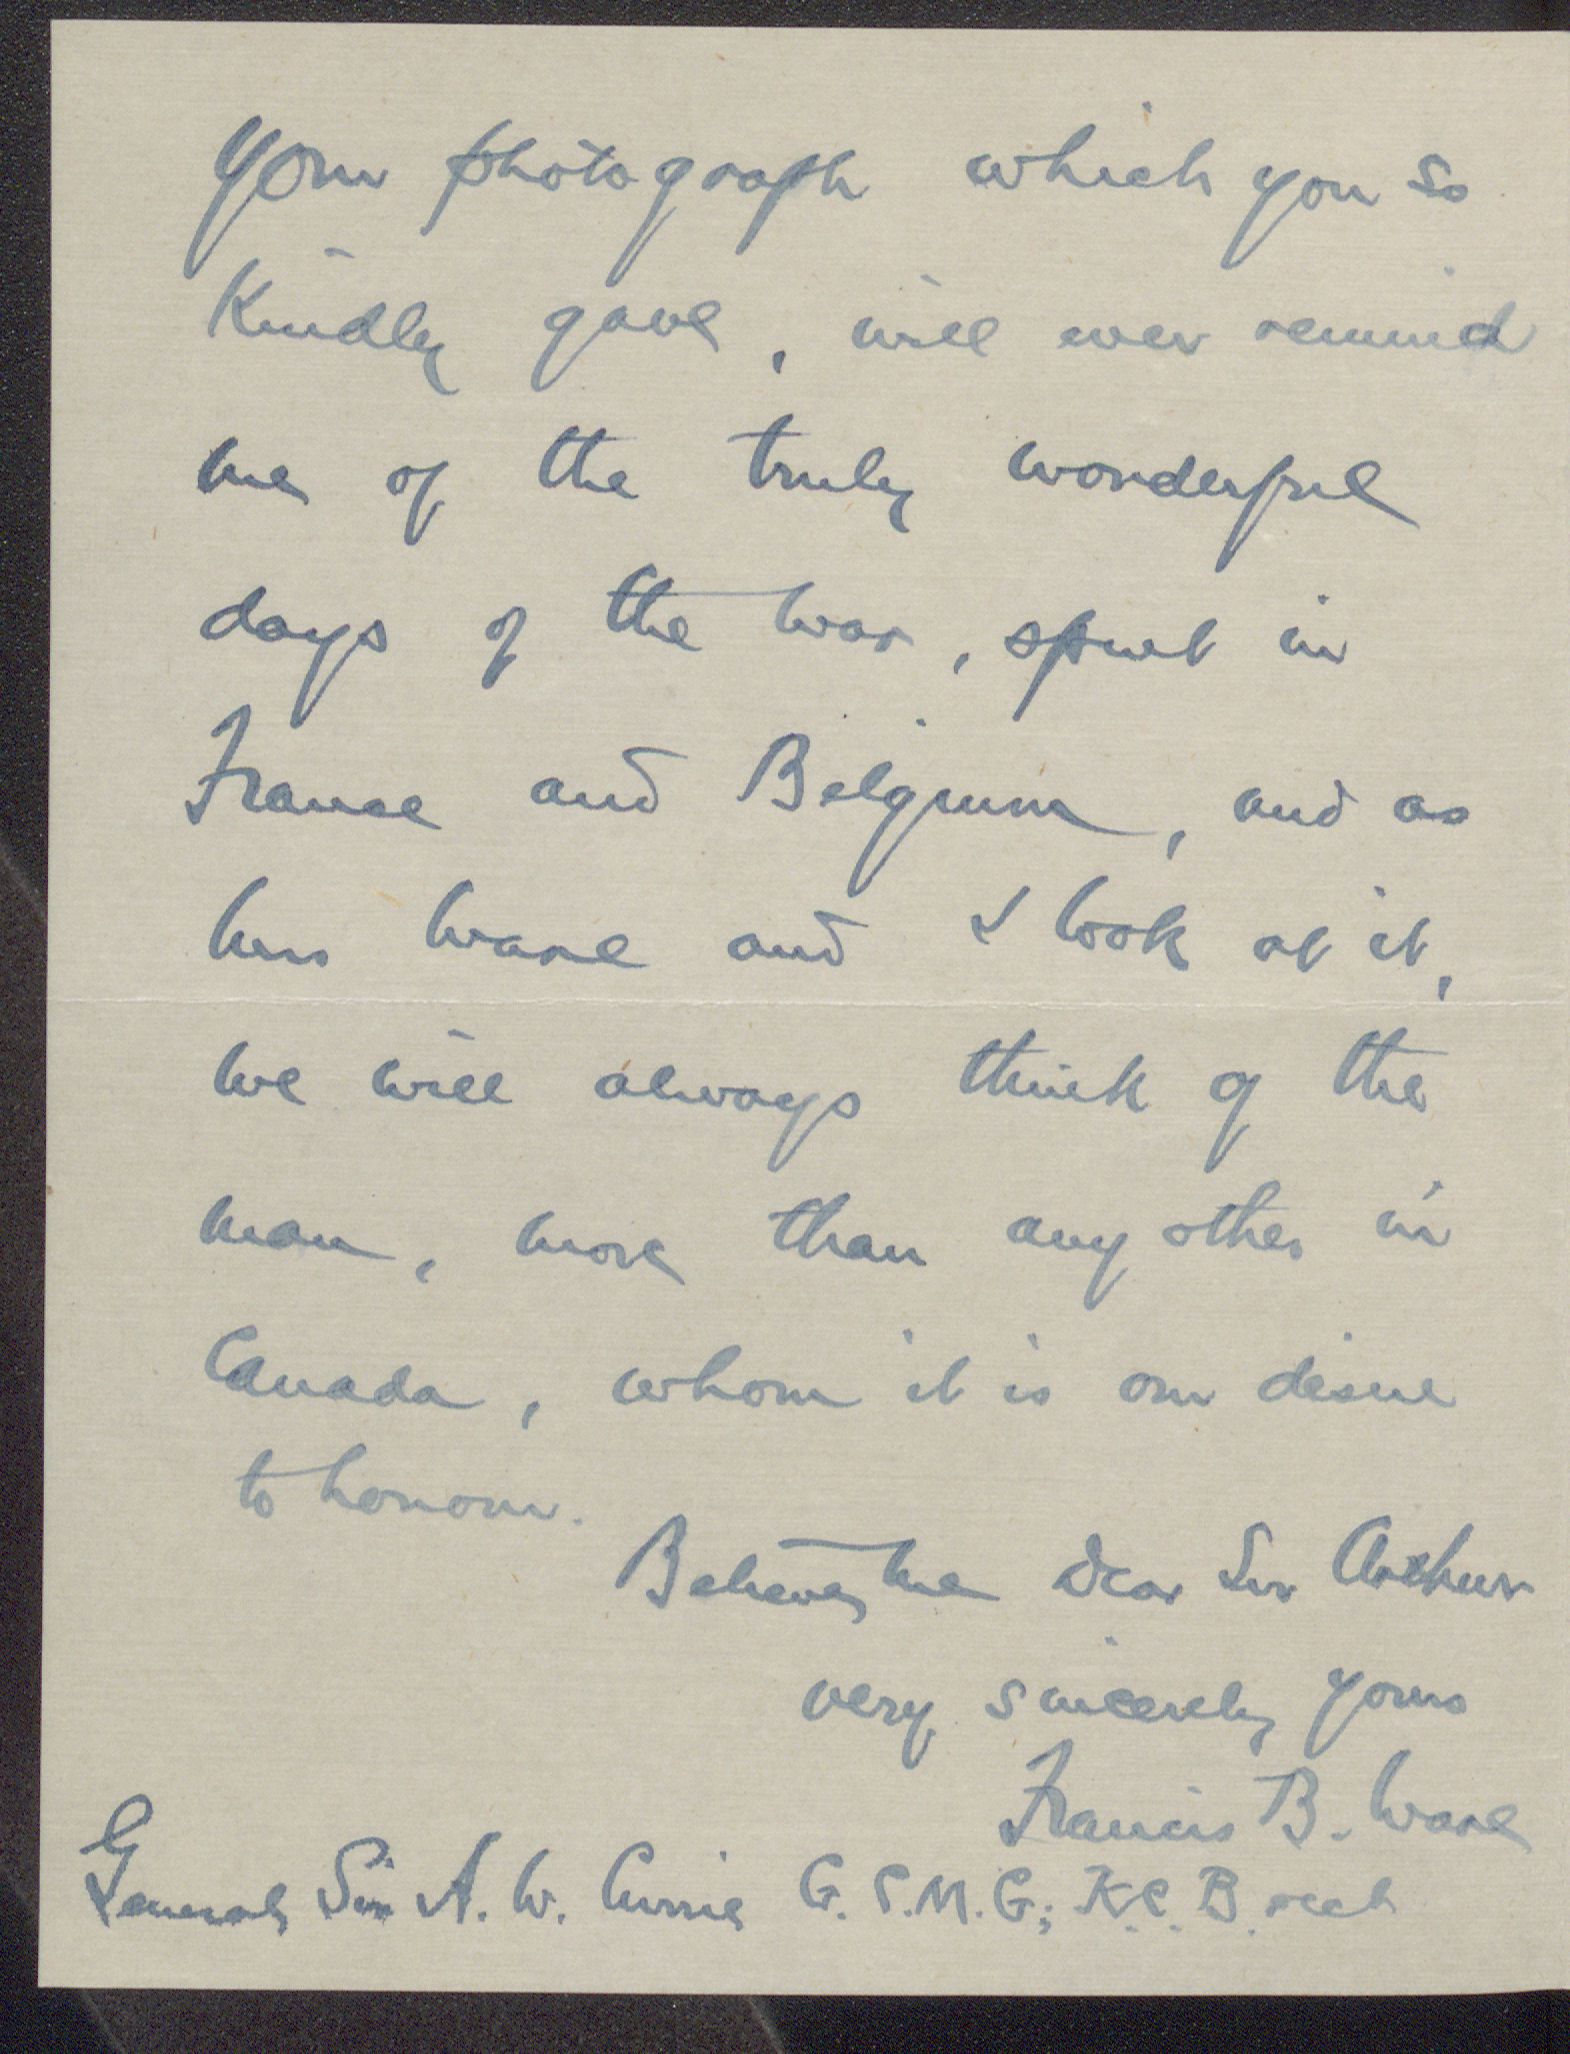 Your photograph which you so
Kindly gave, will ever remind
me of the truly wonderful
days of the war, spent in
France and Belgium, and as
Mrs Ware and I look at it,
we will always think of the
man, more than any other in
Canada, whom it is our desire
to honour.
Believe me Dear Sir Arthur
very sincerely yours
Francis B. Ware
General Sir A. W. Currie G.C.M.G; K.C.B.